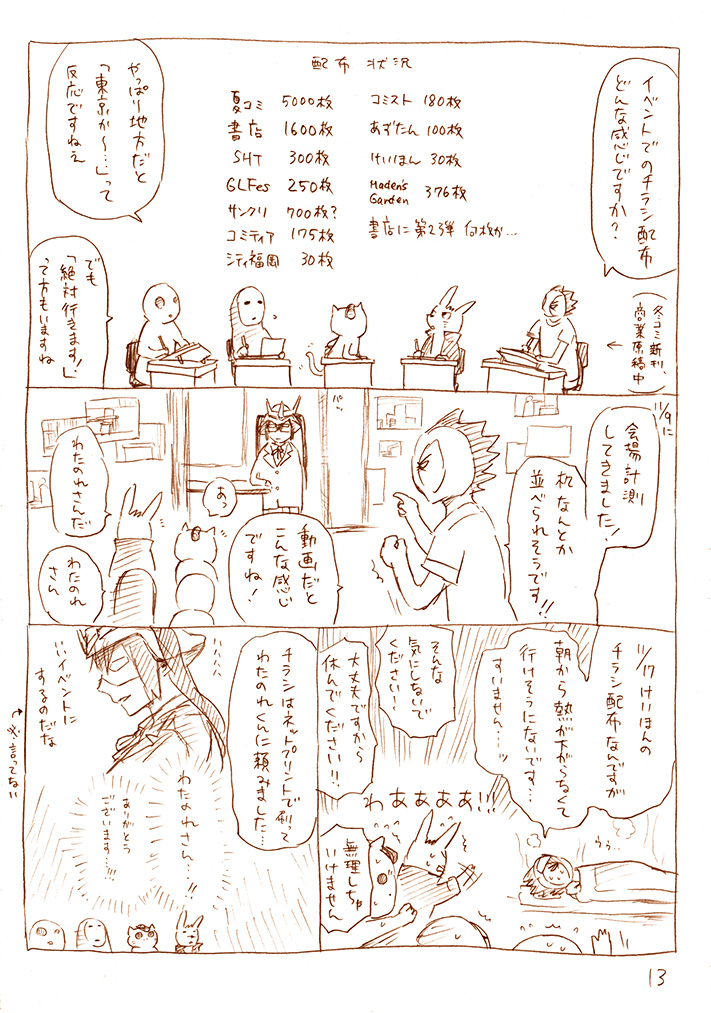 イベントでのチラシ配布
どんな感じですか？
（冬コミ新刊、
商業原稿中）
←
配布状況
夏コミ 5000枚
書店 1600枚
SHT 300枚
GLFes 250枚
サンクリ 700枚？
コミティア 175枚
シティ福岡 30枚
コミスト 180枚
あずたん 100枚
けいほん 30枚
Maden's
Garden 376枚
書店に 第2 3弾 何枚か…
やっぱり地方だと
「東京か〜…」って
反応ですねえ
でも
「絶対行きます！」
って方もいますね
11/9に
会場計測
してきました！
机なんとか
並べられそうです!!
パッ
動画だと
こんな感じ
ですね！
あっ
わたのれさんだ
わたのれ
さん
11/17けいほんの
チラシ配布なんですが
朝から熱が下がらなくて
行けそうにないです…
すいません…ッ
そんな
気にしないで
ください！
大丈夫ですから
休んでください!!
わあああぁ!!!
うぅ…
無理しちゃ
いけません
チラシはネットプリントで刷って
わたのれくんに頼みました…
いいイベントに
するのだな
→※言ってない
わたのれさん…!!
ありがとう
ございます…!!
13